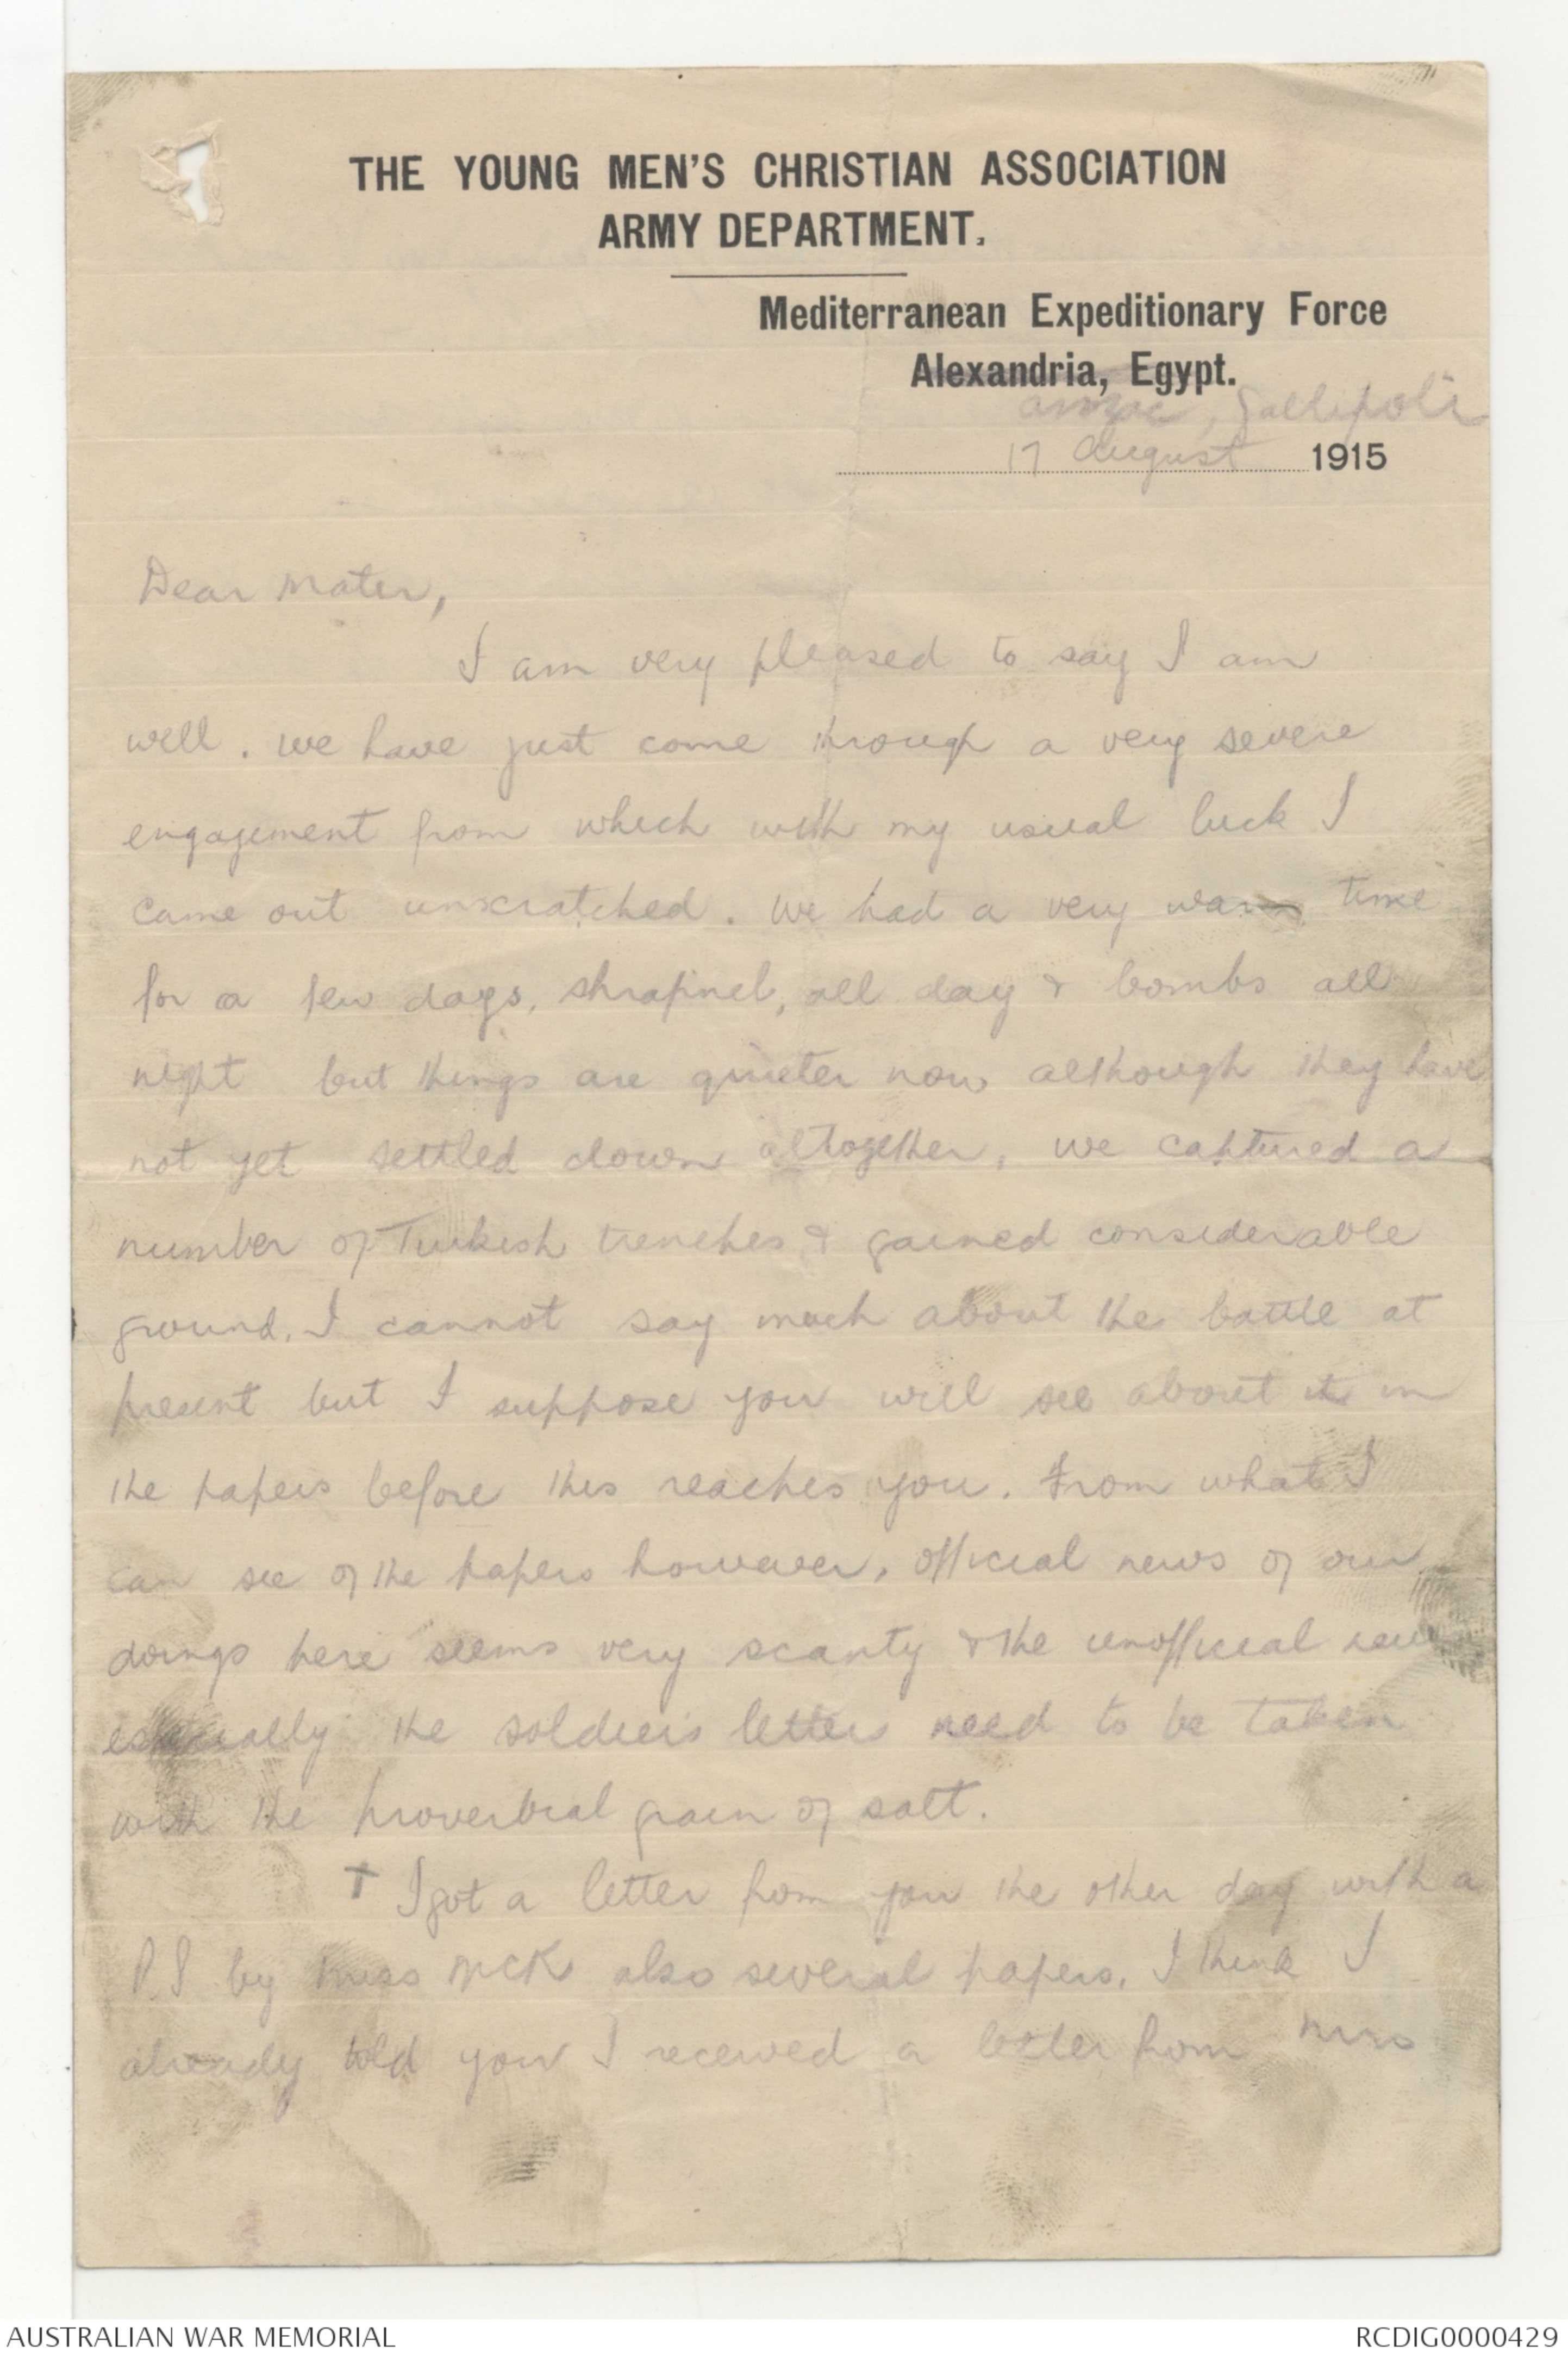 THE YOUNG MEN'S CHRISTIAN ASSOCIATION
ARMY DEPARTMENT.
Mediterranean Expeditionary Force
Alexandria, Egypt.
Anzac, Gallipoli
17 August 1915
Dear Mater,
I am very pleased to say I am
well. We have just come through a very severe
engagement from which with my usual luck I
came out unscratched. We had a very warm time
for a few days, shrapnel, all day & bombs all
night but things are quieter now although they have
not yet settled down altogether, we captured a
number of Turkish trenches & gained considerable
ground. I cannot say much about the battle at
present but I suppose you will see about it in
the papers before this reaches you. From what I
can see of the papers however, official news of our
doings here seems very scanty & the unofficial news
especially the soldiers letters need to be taken
with the proverbial grain of salt.
+ I got a letter from you the other day with a
P.S by Miss McK also several papers. I think I
already told you I received a letter from Mrs
AUSTRALIAN WAR MEMORIAL
RCDIG0000429